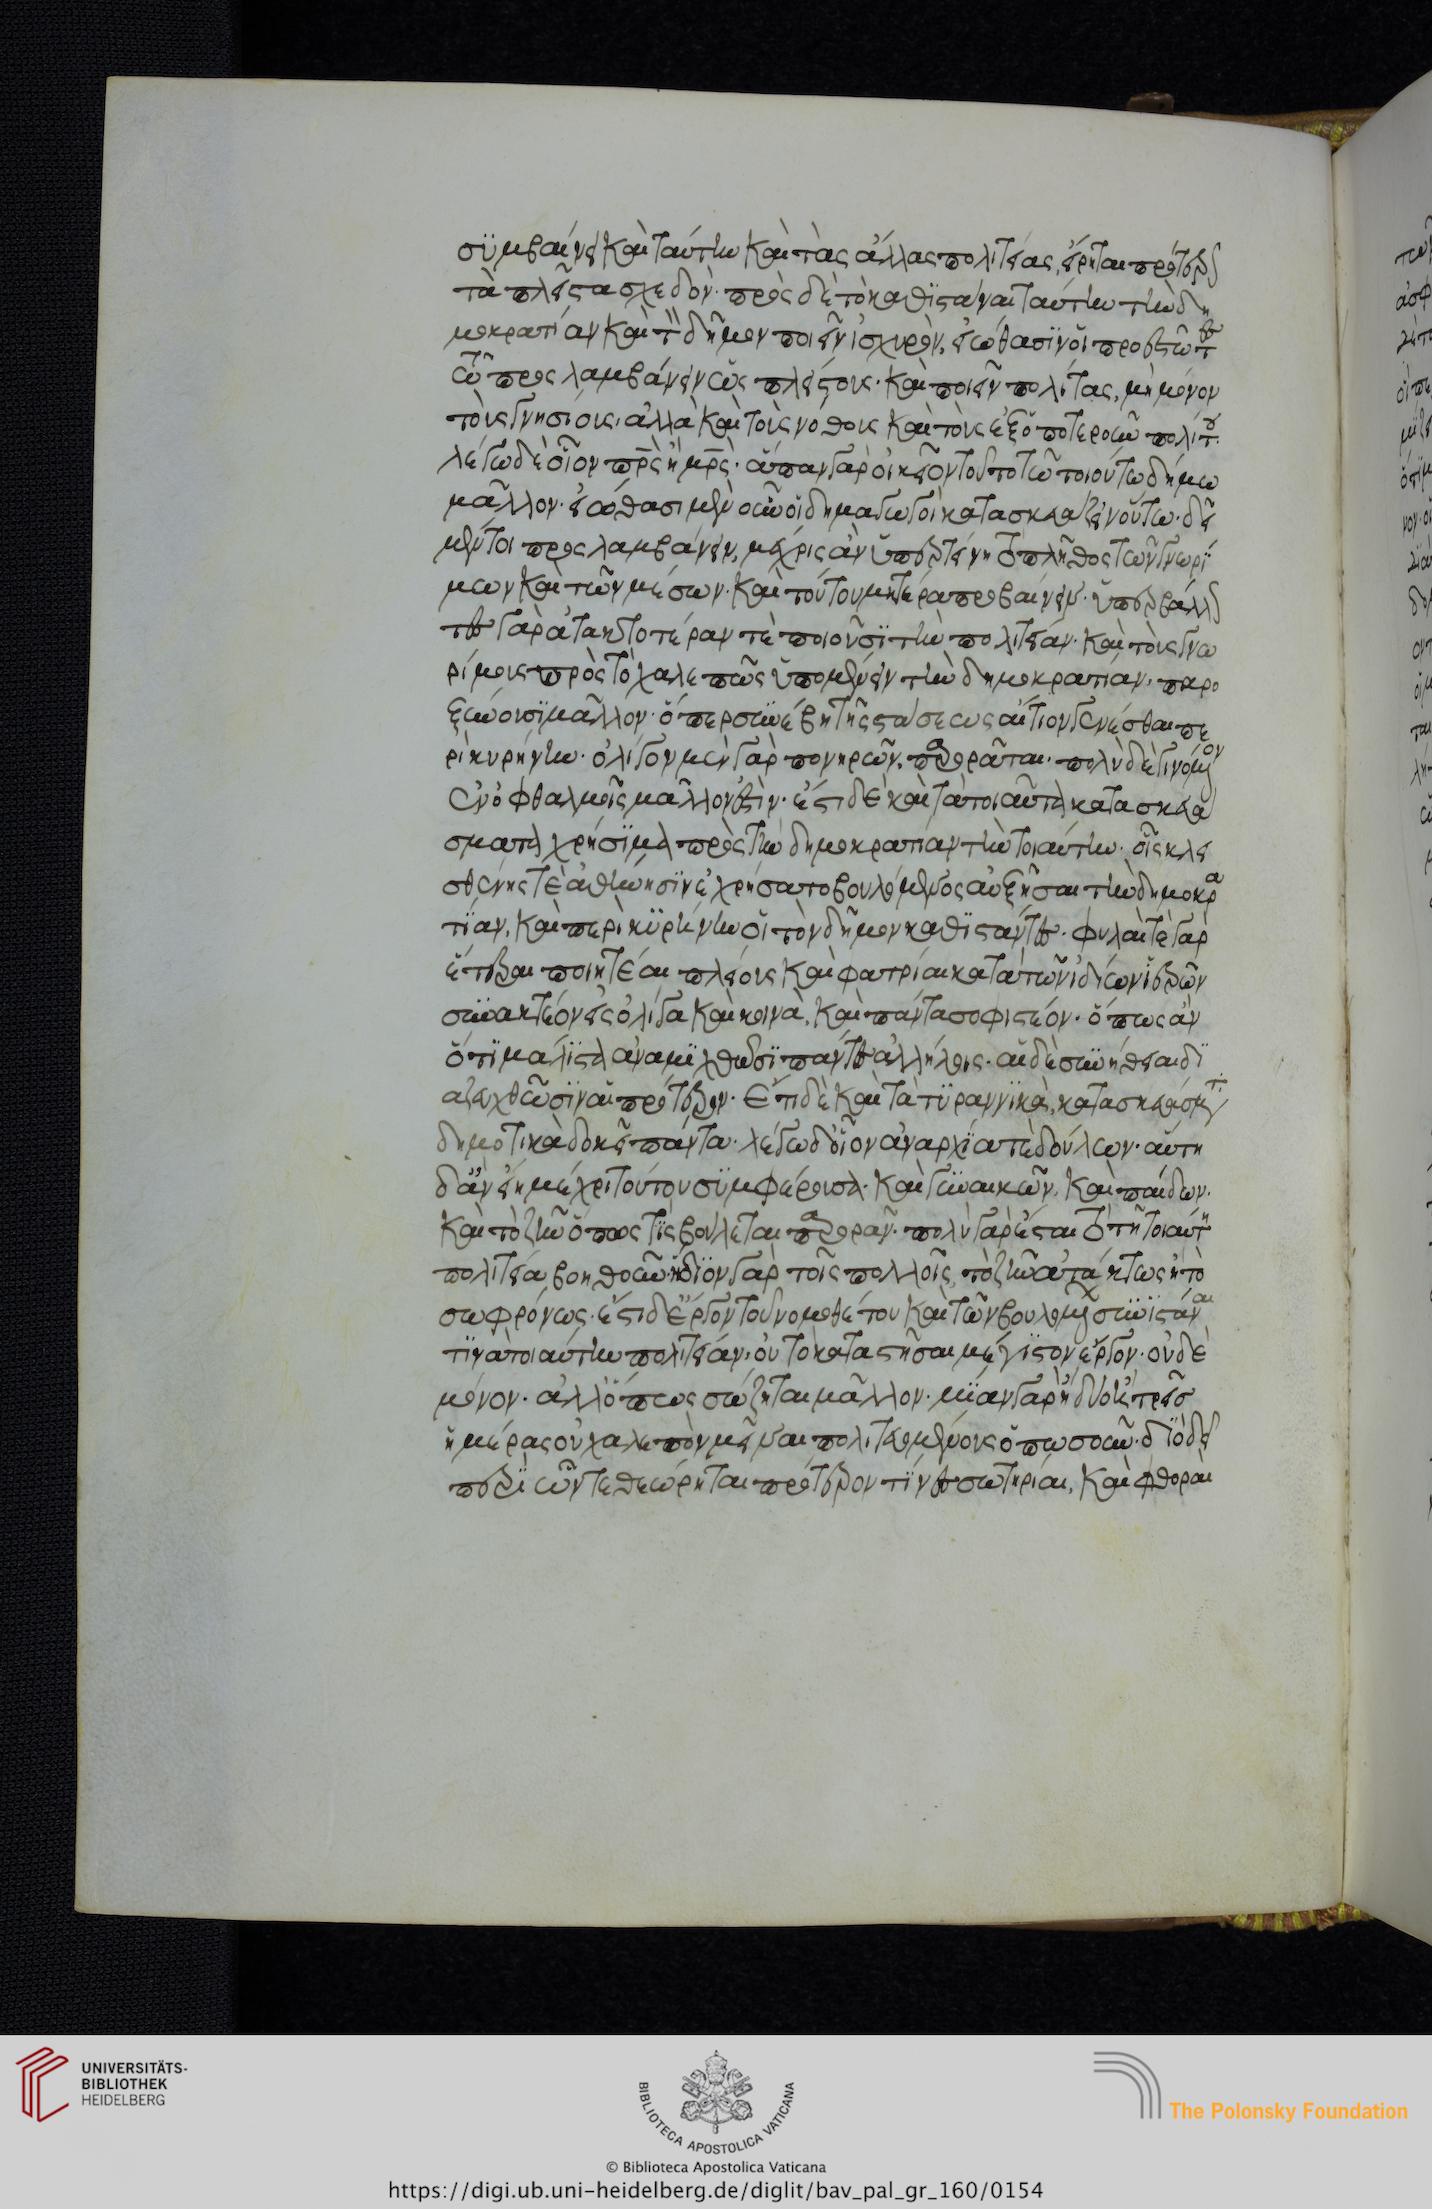 συμβαίνει καὶ ταύτην καὶ τὰς ἄλλας πολιτείας, εἴρηται πρότερον
τὰ πλεῖστα σχεδόν. πρὸς δὲ τὸ καθιστάναι ταύτην τὴν δη
μοκρατίαν καὶ τὸν δῆμον ποιεῖν ἰσχυρὸν, εἰώθασιν οἱ προεστῶτες
τῶ προσλαμβάνειν ὡς πλείστους. καὶ ποιεῖν πολίτας, μὴ μόνον
τοὺς γνησίους, ἀλλὰ καὶ τοὺς νόθους καὶ τοὺς ἐξ ὁποτεροοῦν πολίτου.
λέγω δὲ οἷον πρς ἢ μρς. ἅπαν γὰρ οἰκεῖον τοῦτο τῶ τοιούτω δήμω
μᾶλλον. εἰώθασι μὲν οὖν οἱ δημαγωγοὶ κατασκευάζειν οὕτω. δεῖ
μέντοι προσλαμβάνειν, μέχρις ἂν ὑπερτείνη τὸ πλῆθος τῶν γνωρί
μων καὶ τῶν μέσων. καὶ τούτου μὴ πέρα προβαίνειν. ὑπερβάλλον
τες γὰρ ἀτακτοτέραν τὲ ποιοῦσι τὴν πολιτείαν. καὶ τοὺς γνω
ρίμους πρὸς τὸ χαλεπῶς ὑπομένειν τὴν δημοκρατίαν, παρο
ξύνουσι μᾶλλον. ὅπερ συνέβη τῆς στάσεως αἴτιον γενέσθαι πε
ρὶ κυρήνην. ὀλίγον μὲν γὰρ πονηρὸν, παρορᾶται. πολὺ δὲ γινόμενον
ἐν ὀφθαλμοῖς μᾶλλον ἐστίν. ἔτι δὲ καὶ τὰ τοιαῦτα κατασκευά
σματα χρήσιμα πρὸς τὴν δημοκρατίαν τὴν τοιαύτην. οἷς κλει
σθένης τὲ ἀθήνησιν ἐχρήσατο βουλόμενος αὐξῆσαι τὴν δημοκρα
τίαν, καὶ περὶ κυρήνην οἱ τὸν δῆμον καθιστάντες. φυλαί τε γὰρ
ἕτεραι ποιητέαι πλείους καὶ φατρίαι κατὰ τῶν ἰδίων ἱερῶν
συνακτέον εἰς ὀλίγα καὶ κοινὰ, καὶ πάντα σοφιστέον. ὅπως ἂν
ὅτι μάλιστα ἀναμιχθῶσι πάντες ἀλλήλοις. αἱ δὲ συνήθειαι δι
αζευχθῶσιν αἱ πρότερον. ἔτι δὲ καὶ τὰ τυραννικὰ, κατασκευάσματα
δημοτικὰ δοκεῖ πάντα. λέγω δ' οἷον ἀναρχία τὲ δούλων. αὕτη
δ' ἂν εἴη μέχρι τούτου συμφέρουσα. καὶ γυναικῶν, καὶ παίδων.
καὶ τὸ ζῆν ὅπως τὶς βούλεται παρορᾶν. πολὺ γὰρ ἔσται τὸ τῆ τοιαύτη
πολιτεία βοηθοῦν. ἥδιον γὰρ τοῖς πολλοῖς, τὸ ζῆν ἀτάκτως ἢ τὸ
σωφρόνως. ἔστι δὲ ἔργον τοῦ νομοθέτου καὶ τῶν βουλομένων συνιστάναι
τινὰ τοιαύτην πολιτείαν, οὐ τὸ καταστῆσαι μέγιστον ἔργον. οὐδὲ
μόνον. ἀλλ' ὅπως σώζηται μᾶλλον. μίαν γὰρ ἢ δύο ἢ τρεῖς
ἡμέρας οὐ χαλεπὸν μεῖναι πολιτευομένους ὁπωσοῦν. διὸ δεῖ
περὶ ὧν τεθεώρηται πρότερον τίνες σωτηρίαι, καὶ φθοραὶ
UNIVERSITÄTS-
BIBLIOTHEK
HEIDELBERG
BIBLIOTECA APOSTOLICA VATICANA
The Polonsky Foundation
© Biblioteca Apostolica Vaticana
https://digi.ub.uni-heidelberg.de/diglit/bav_pal_gr_160/0154